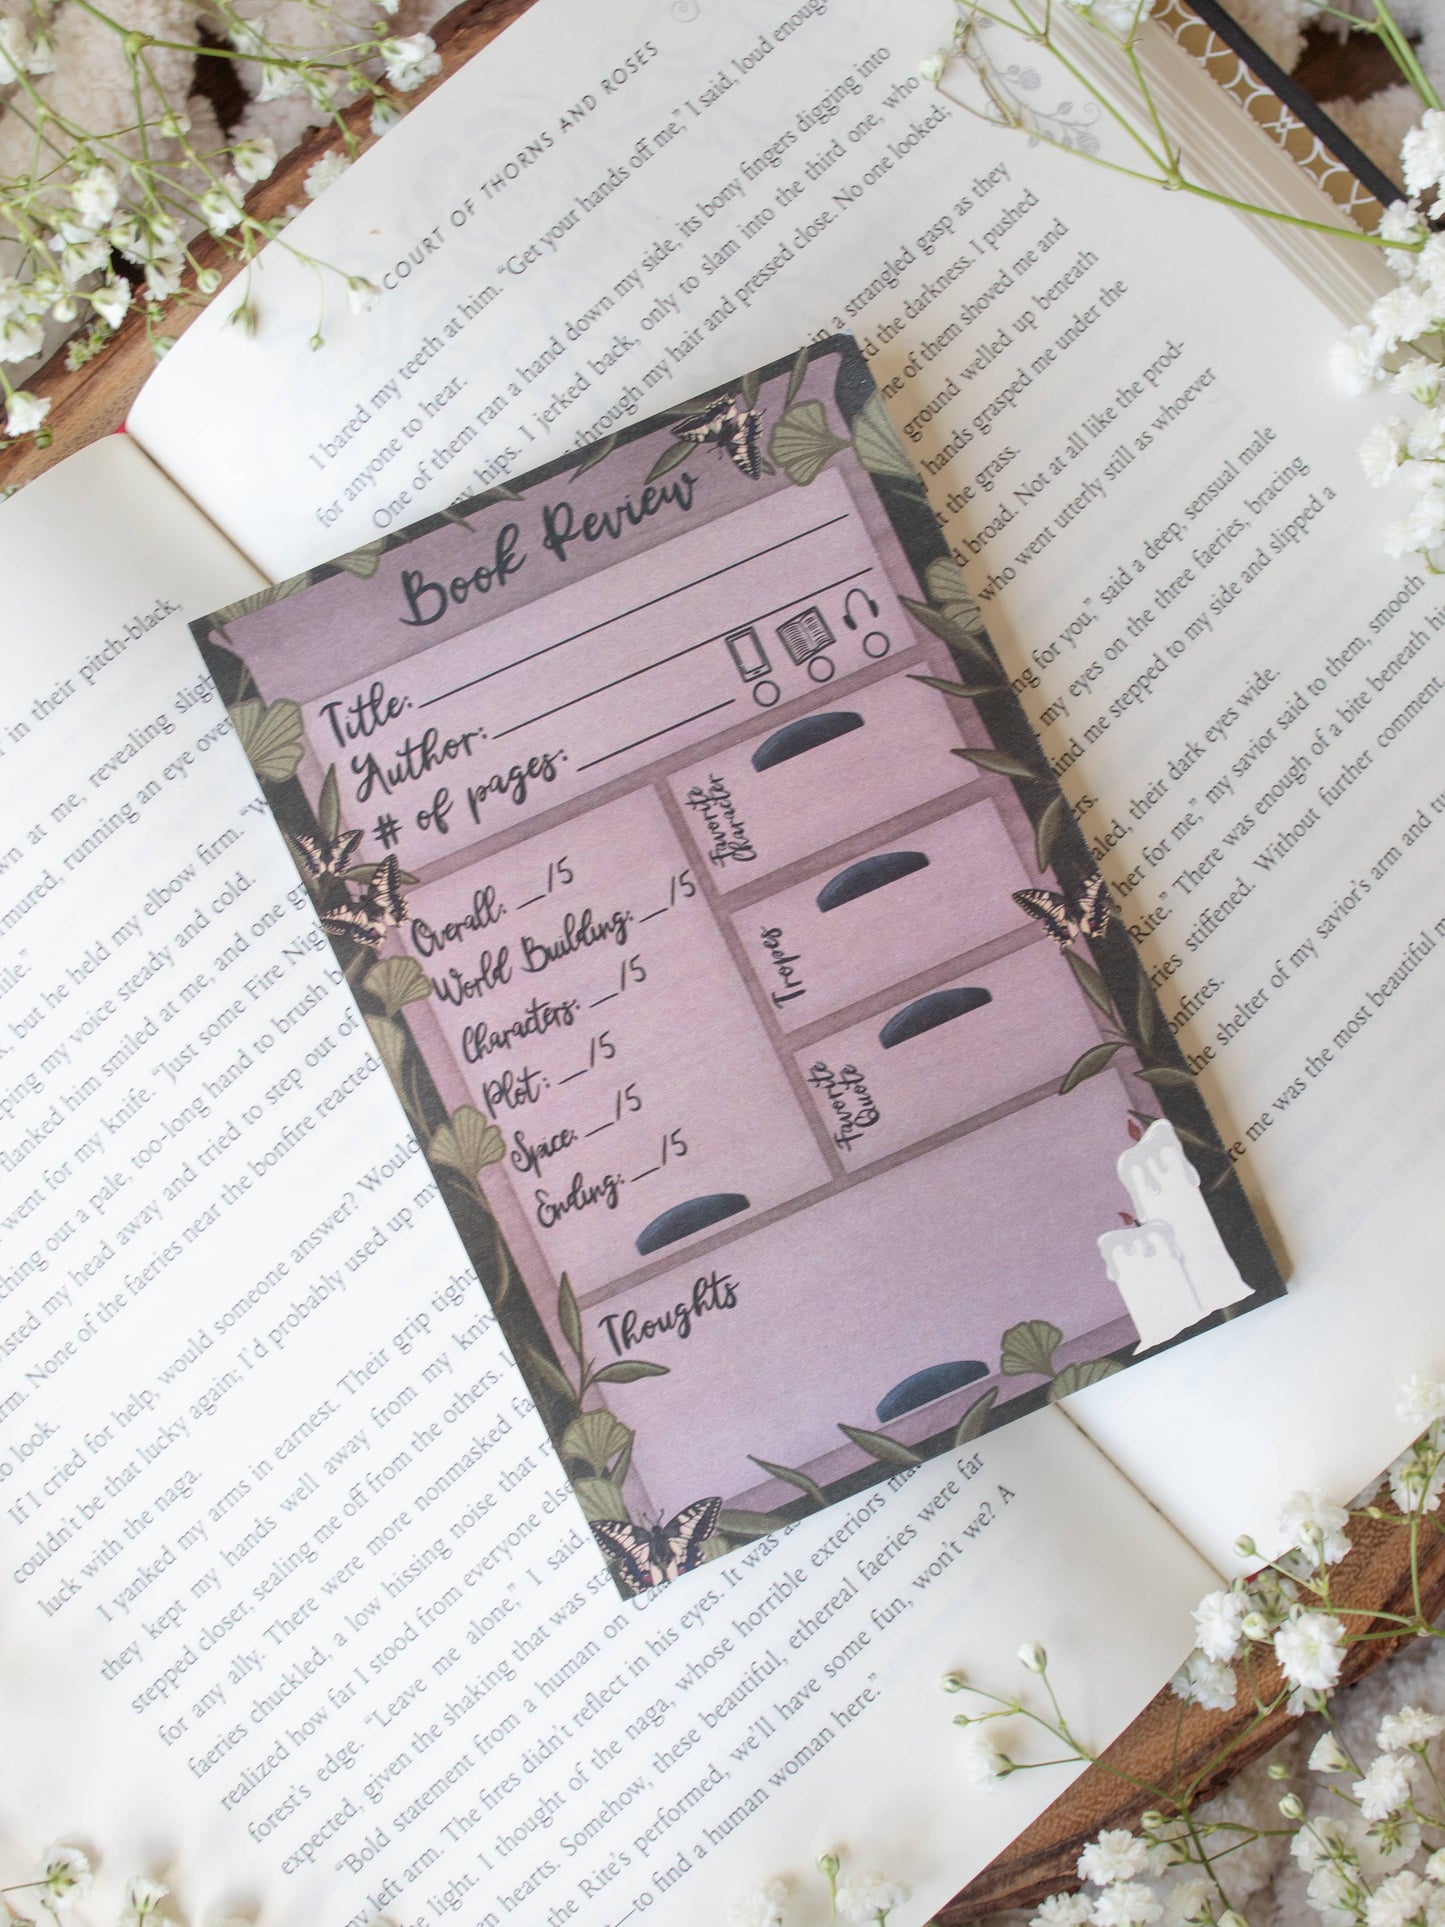 COURT OF THORNS AND ROSES
I bared my teeth at him. “Get your hands off me,” I said, loud enough
for anyone to hear.
One of them ran a hand down my side, its bony fingers digging into
my hips. I jerked back, only to slam into the third one, who
through my hair and pressed close. No one looked;
in a strangled gasp as they
the darkness. I pushed
one of them shoved me and
ground welled up beneath
hands grasped me under the
the grass.
broad. Not at all like the prod-
who went utterly still as whoever
for you,” said a deep, sensual male
my eyes on the three faeries, bracing
me stepped to my side and slipped a
their dark eyes wide.
her for me,” my savior said to them, smooth
Rite.” There was enough of a bite beneath
stiffened. Without further comment,
the shelter of my savior’s arm and
me was the most beautiful
Book Review
Title:
Author:
# of pages:
Overall: __/5
World Building: __/5
Characters: __/5
Plot: __/5
Spice: __/5
Ending: __/5
Favorite
Character
Tropes
Favorite
Quote
Thoughts
in their pitch-black,
at me, revealing
running an eye over
but he held my elbow firm.
my voice steady and cold.
him smiled at me, and one
went for my knife. “Just some Fire
out a pale, too-long hand to brush
my head away and tried to step out of
None of the faeries near the bonfire reacted
look.
If I cried for help, would someone answer? Would
couldn’t be that lucky again; I’d probably used up my
luck with the naga.
I yanked my arms in earnest. Their grip
they kept my hands well away from my
stepped closer, sealing me off from the others.
for any ally. There were more nonmasked
faeries chuckled, a low hissing noise that
realized how far I stood from everyone else
forest’s edge. “Leave me alone,” I said,
expected, given the shaking that was
“Bold statement from a human on
my left arm. The fires didn’t reflect in his eyes. It was as
the light. I thought of the naga, whose horrible exteriors
hearts. Somehow, these beautiful, ethereal faeries were far
the Rite’s performed, we’ll have some fun, won’t we? A
—to find a human woman here.”